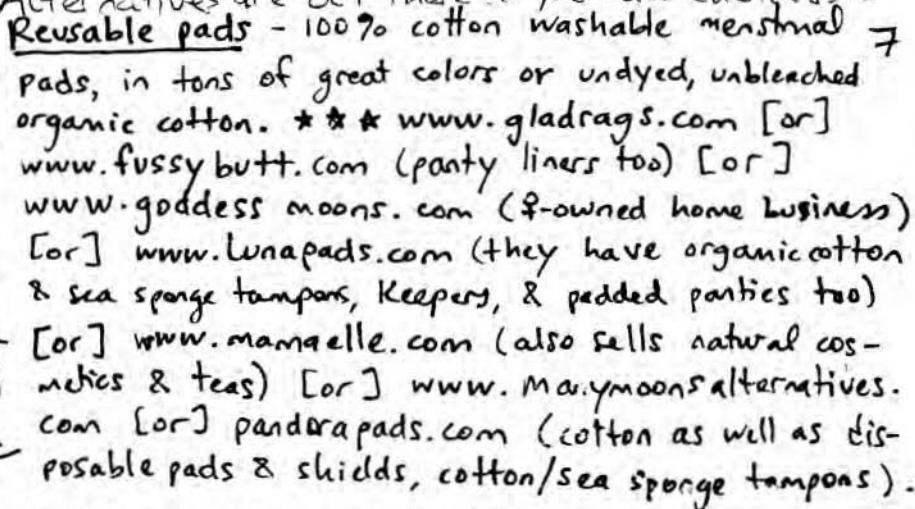 Alternatives are out there
Reusable pads - 100% cotton washable menstrual 7
pads, in tons of great colors or undyed, unbleached
organic cotton. ★★★ www.gladrags.com [or]
www.fussybutt.com (panty liners too) [or]
www.goddessmoons.com (♀-owned home business)
[or] www.Lunapads.com (they have organic cotton
& sea sponge tampons, Keepers, & padded panties too)
[or] www.mamaelle.com (also sells natural cos-
metics & teas) [or] www.manymoonsalternatives.
com [or] pandorapads.com (cotton as well as dis-
posable pads & shields, cotton/sea sponge tampons).